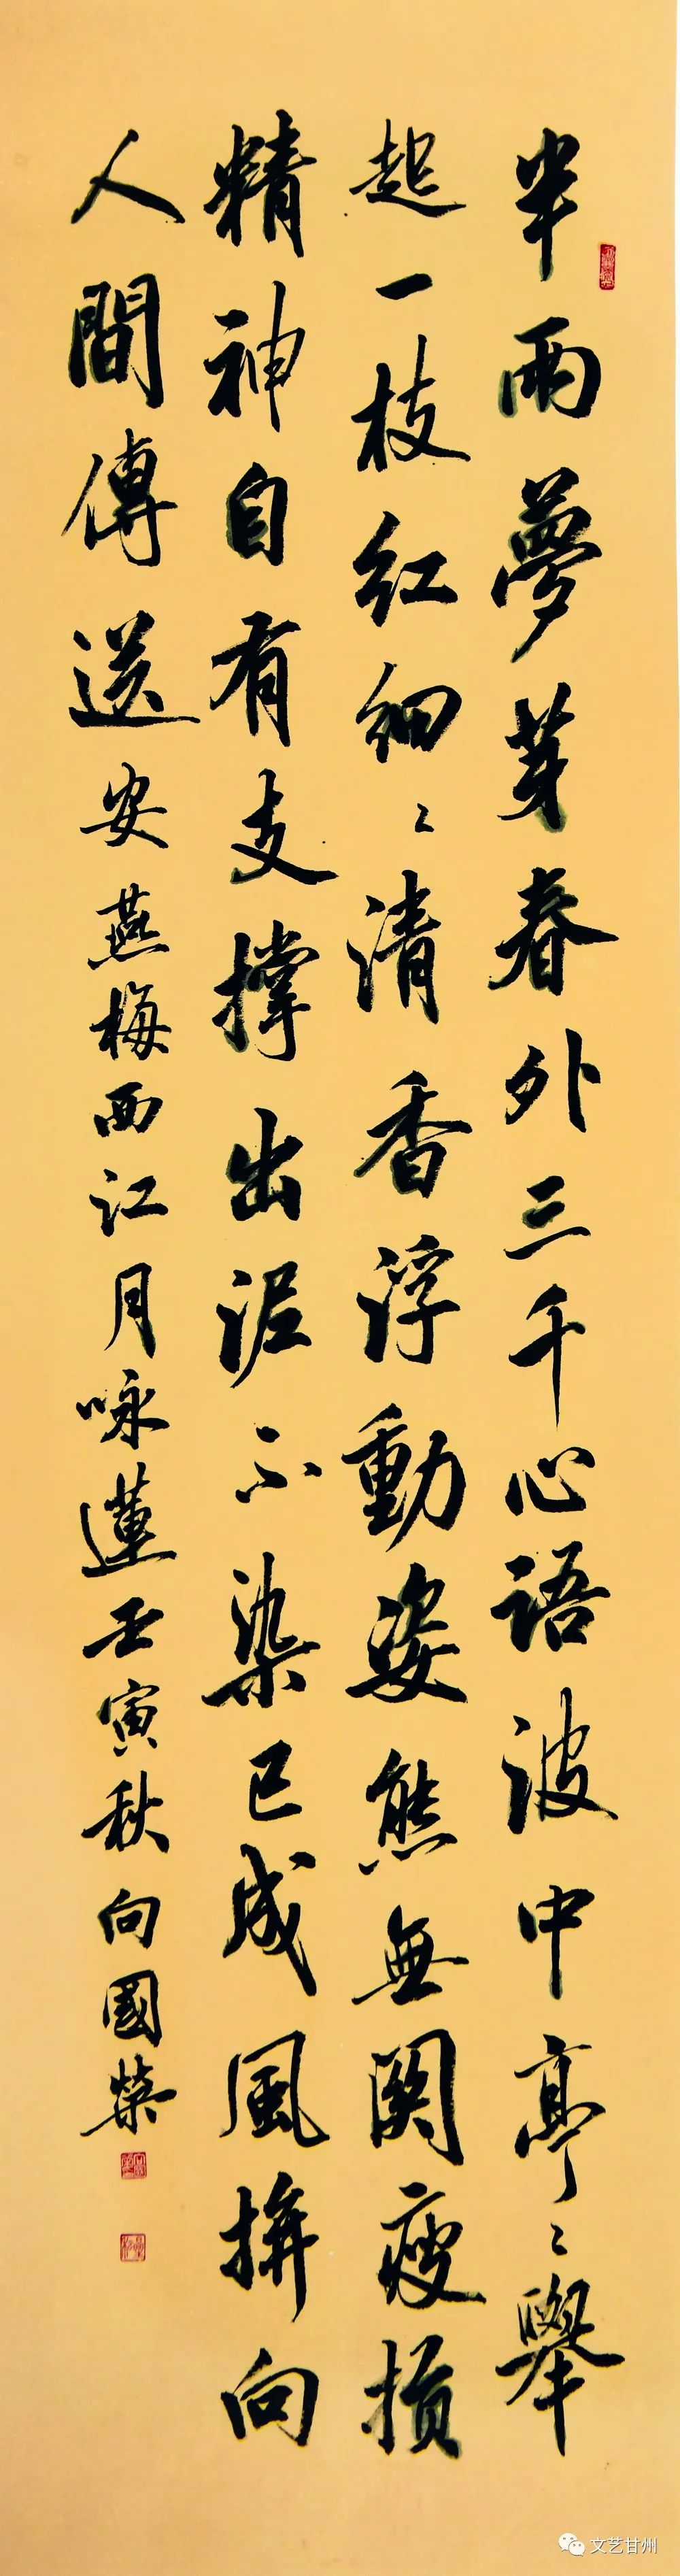 半雨夢芽春外三千心語波中亭〻舉
起一枝红細〻清香浮動姿態無関瘦损
精神自有支撑出泥不染已成風拚向
人間傳送安燕梅西江月咏蓮壬寅秋向國榮
文艺甘州